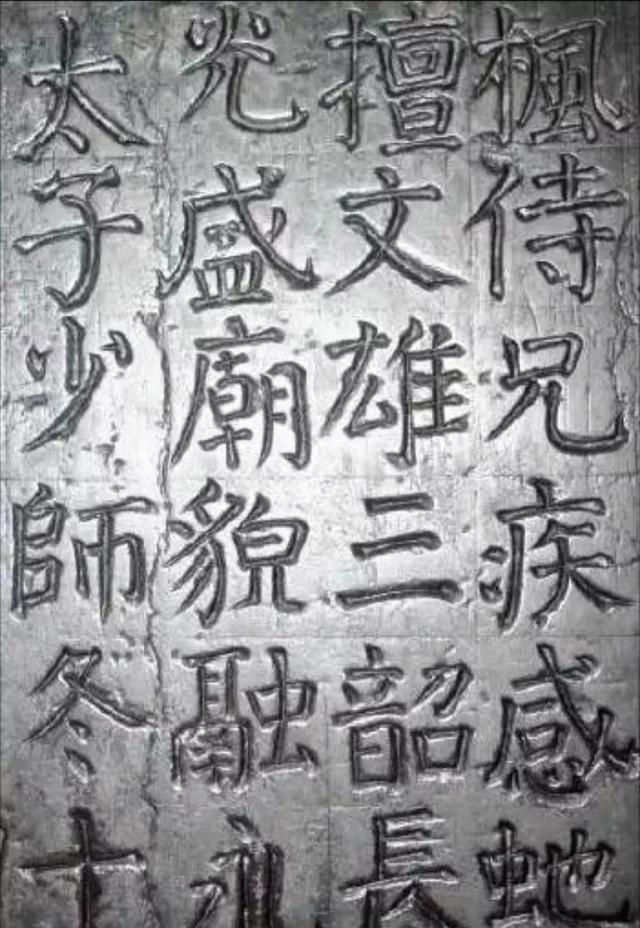 楓侍兄疾感虵
擅文雄三韶長
光盛廟貌融
太子少師冬十